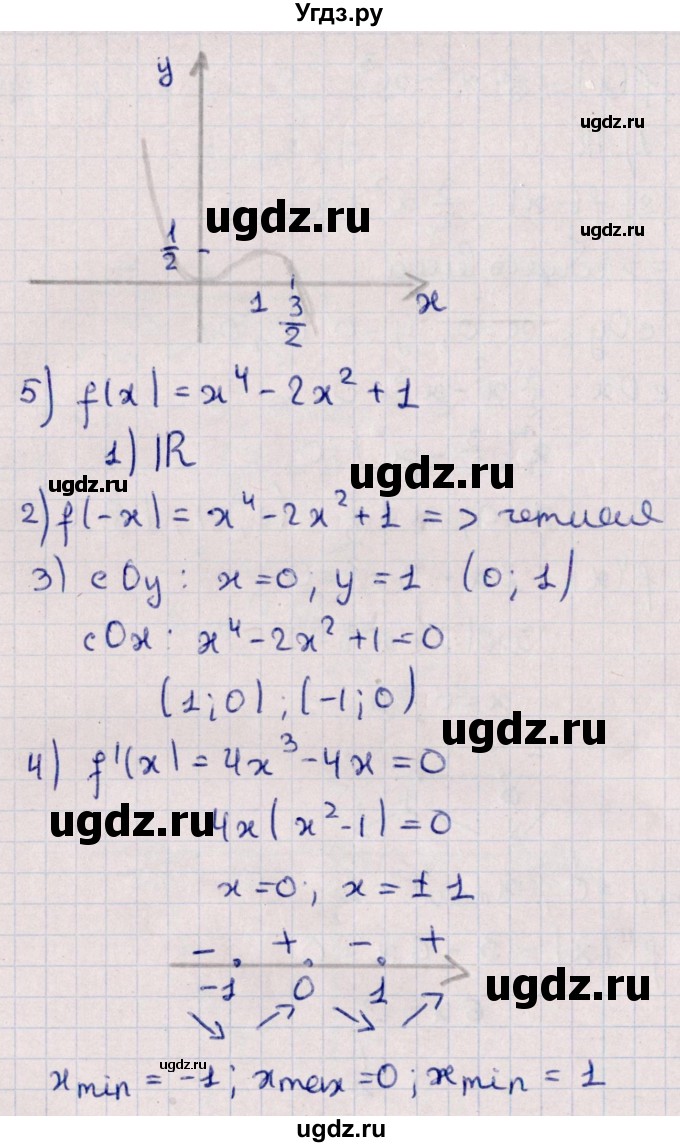 Угдз.ру
y
ugdz.ru
ugdz.ru
1/2
1 3/2 x
5) f(x) = x⁴ - 2x² + 1
1) R
ugdz.ru
ugdz.ru
2) f(-x) = x⁴ - 2x² + 1 => четная
3) с Oy: x = 0, y = 1 (0; 1)
ugdz.ru
с Ox: x⁴ - 2x² + 1 = 0
(1; 0); (-1; 0)
ugdz.ru
4) f'(x) = 4x³ - 4x = 0
ugdz.ru
4x(x² - 1) = 0
x = 0; x = ±1
- + - +
-1 0 1
ugdz.ru
ugdz.ru
xmin = -1; xmax = 0; xmin = 1
ugdz.ru